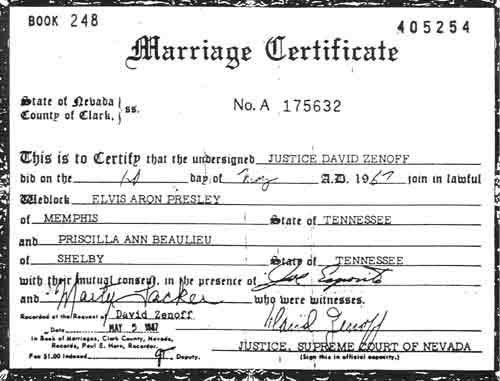 BOOK 248
405254
Marriage Certificate
State of Nevada
County of Clark, } ss.
No. A 175632
This is to Certify that the undersigned JUSTICE DAVID ZENOFF
did on the 1st day of May A.D. 1967 join in lawful
Wedlock ELVIS ARON PRESLEY
of MEMPHIS State of TENNESSEE
and PRISCILLA ANN BEAULIEU
of SHELBY State of TENNESSEE
with their mutual consent, in the presence of Joe Esposito
and Marty Lacker who were witnesses.
Recorded at the Request of David Zenoff
Date MAY 5
David Zenoff
In Book of Marriages, Clark County, Nevada,
Records, Paul E. Horn, Recorder.
JUSTICE, SUPREME COURT OF NEVADA
Fee $1.00 Indexed Deputy.
(Sign this in official capacity.)